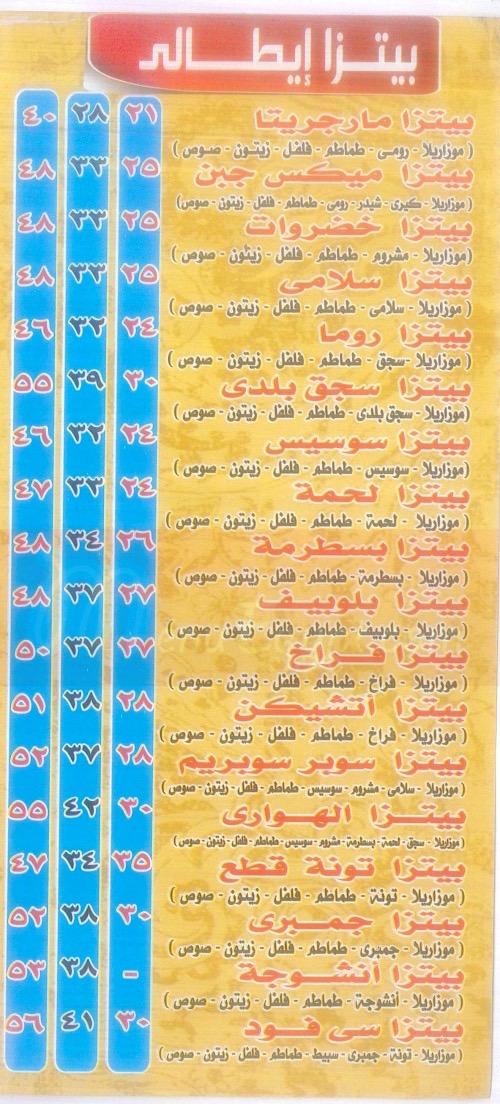 بيتزا إيطالى
بيتزا مارجريتا ٢١ ٢٨ ٤٠
( موزاريلا - رومى - طماطم - فلفل - زيتون - صوص )
بيتزا ميكس جبن ٢٥ ٣٣ ٤٨
(موزاريلا - كيرى - شيدر - رومى - طماطم - فلفل - زيتون - صوص)
بيتزا خضروات ٢٥ ٣٣ ٤٨
(موزاريلا - مشروم - طماطم - فلفل - زيتون - صوص )
بيتزا سلامى ٢٥ ٣٣ ٤٨
( موزاريلا - سلامى - طماطم - فلفل - زيتون - صوص )
بيتزا روما ٢٤ ٣٢ ٤٦
( موزاريلا -سجق - طماطم - فلفل - زيتون - صوص )
بيتزا سجق بلدى ٣٠ ٣٩ ٥٥
(موزاريلا - سجق بلدى - طماطم - فلفل - زيتون - صوص )
بيتزا سوسيس ٢٤ ٣٢ ٤٦
(موزاريلا - سوسيس - طماطم - فلفل - زيتون - صوص )
بيتزا لحمة ٢٤ ٣٣ ٤٧
( موزاريلا - لحمة - طماطم - فلفل - زيتون - صوص )
بيتزا بسطرمة ٢٦ ٣٤ ٤٨
( موزاريلا - بسطرمة - طماطم - فلفل - زيتون - صوص )
بيتزا بلوبيف ٢٧ ٣٧ ٤٨
( موزاريلا - بلوبيف - طماطم - فلفل - زيتون - صوص )
بيتزا فراخ ٢٧ ٣٧ ٥٠
( موزاريلا - فراخ - طماطم - فلفل - زيتون - صوص )
بيتزا آتشيكن ٢٨ ٣٨ ٥١
( موزاريلا - فراخ - طماطم - فلفل - زيتون - صوص )
بيتزا سوبر سوبريم ٢٨ ٣٧ ٥٢
( موزاريلا - سلامى - مشروم - سوسيس - طماطم - فلفل - زيتون - صوص )
بيتزا الهوارى ٣٠ ٤٢ ٥٥
( موزاريلا - سجق - لحمة - بسطرمة - مشروم - سوسيس - طماطم - فلفل - زيتون - صوص )
بيتزا تونة قطع ٣٥ ٣٤ ٤٧
( موزاريلا - تونة - طماطم - فلفل - زيتون - صوص )
بيتزا جمبرى ٣٠ ٣٨ ٥٢
( موزاريلا - جمبرى - طماطم - فلفل - زيتون - صوص )
بيتزا أنشوجة - ٣٨ ٥٣
( موزاريلا - أنشوجة - طماطم - فلفل - زيتون - صوص )
بيتزا سى فود ٣٠ ٤١ ٥٦
( موزاريلا - تونة - جمبرى - سبيط - طماطم - فلفل - زيتون - صوص )